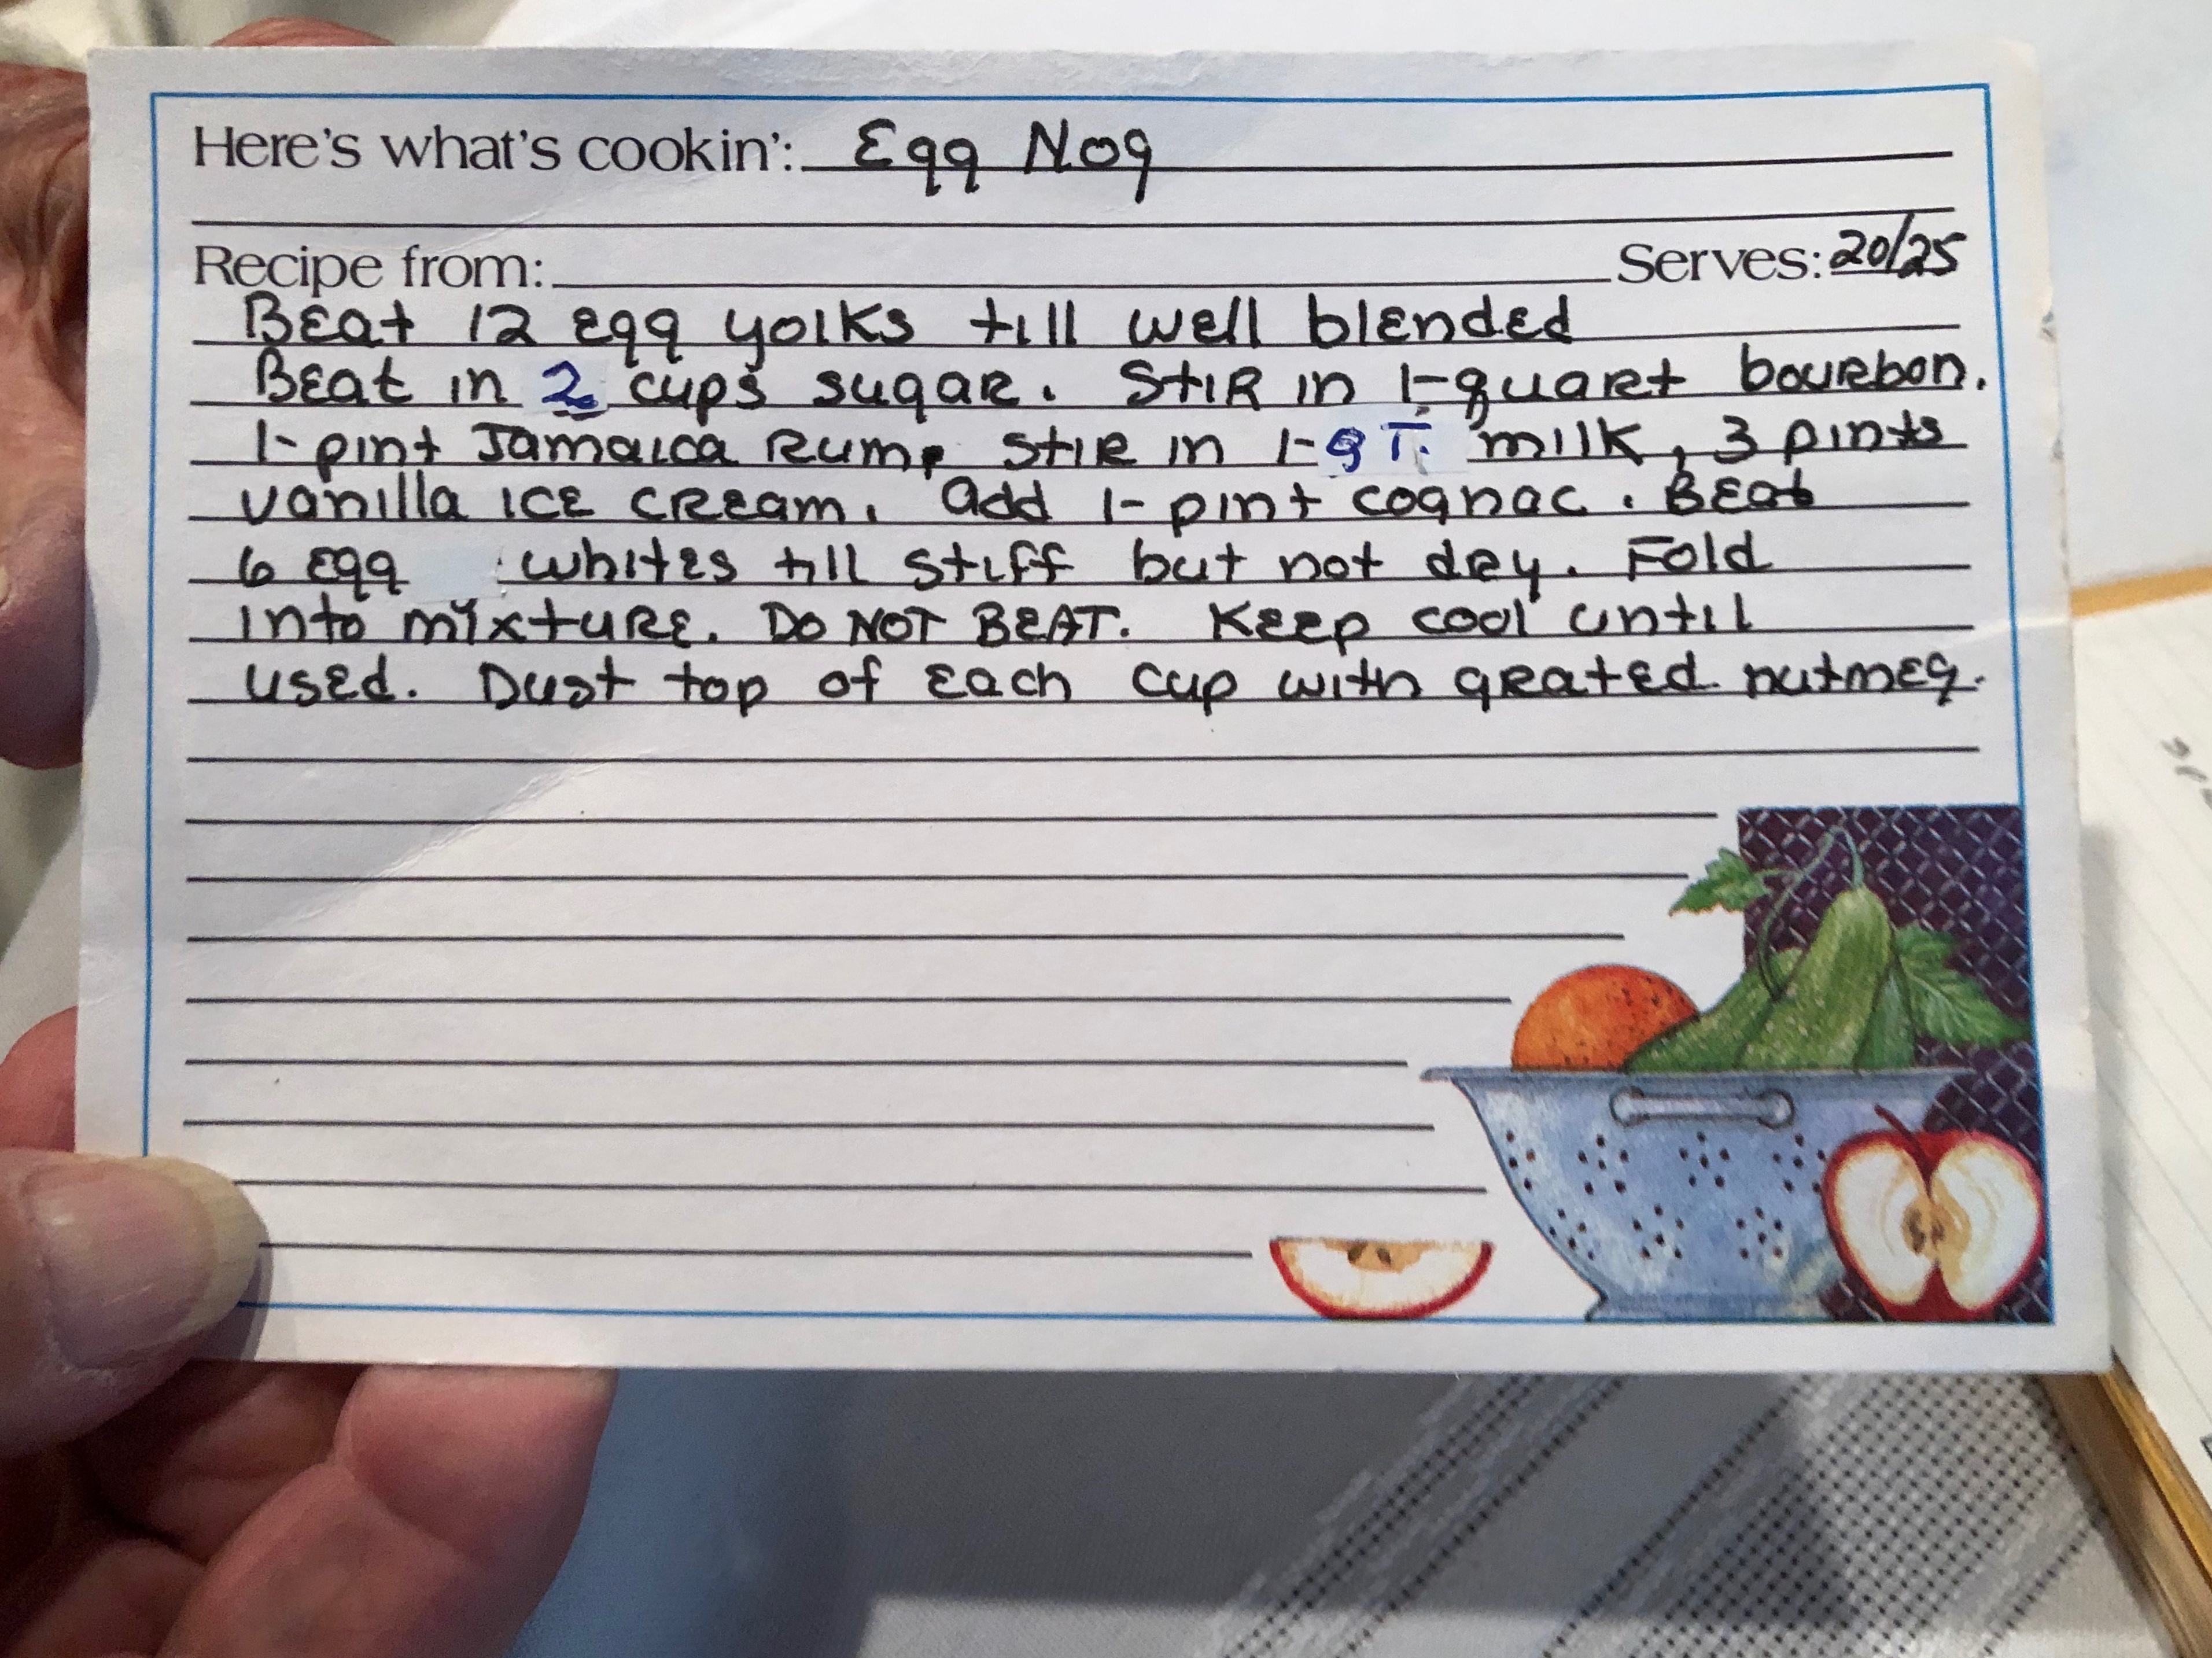 Here's what's cookin': Egg Nog
Recipe from: Serves: 20/25
Beat 12 egg yolks till well blended
Beat in 2 cups sugar. Stir in 1-quart bourbon.
1-pint Jamaica Rum, stir in 1-QT. milk, 3 pints
vanilla ice cream. Add 1-pint cognac. Beat
6 egg whites till stiff but not dry. Fold
into mixture. DO NOT BEAT. Keep cool until
used. Dust top of each cup with grated nutmeg.